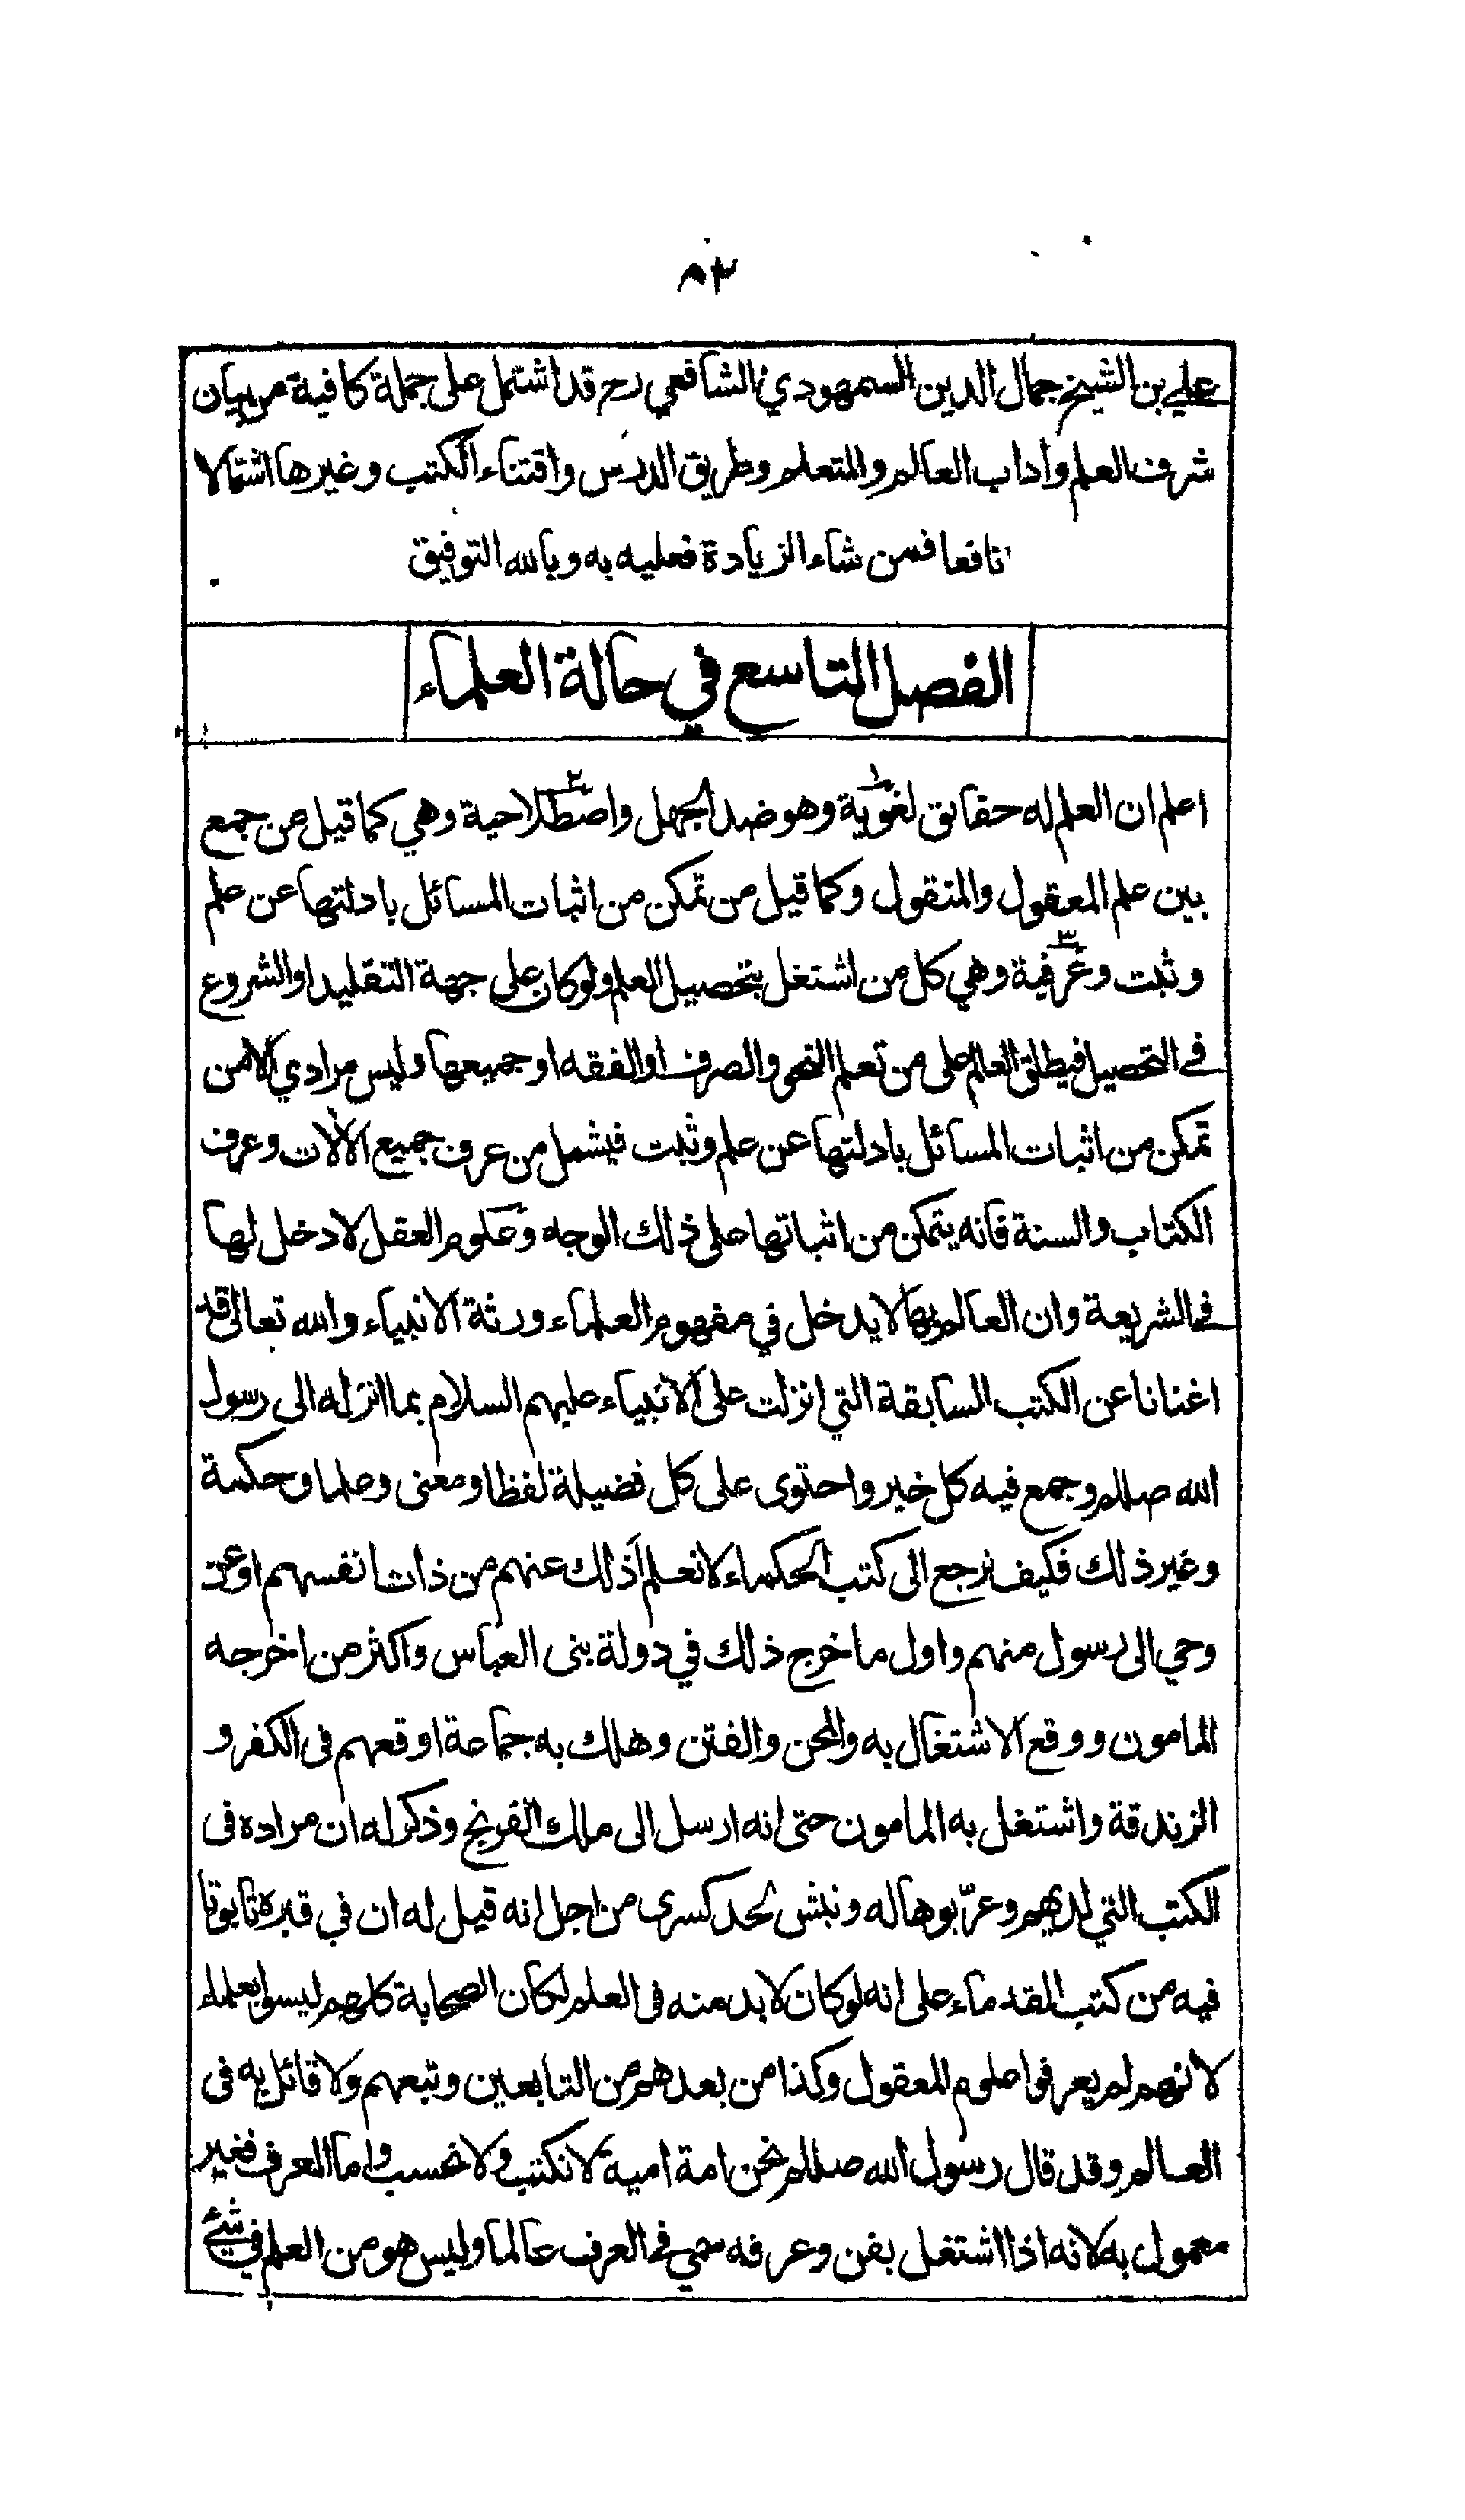 ٨٢
علي بن الشيخ جمال الدين السمهودي الشافعي رح قد اشتمل على جملة كافية من بيان
شرف العلم واداب العالم والمتعلم وطريق الدرس واقتناء الكتب وغيرها اشتمالا
نافعا فمن شاء الزيادة فعليه به وبالله التوفيق
الفصل التاسع في حالة العلماء
اعلم ان العلم له حقائق لغوية١ وهو ضد الجهل واصطلاحية٢ وهي كما قيل من جمع
بين علم المعقول والمنقول وكما قيل من تمكن من اثبات المسائل بادلتها عن علم
وثبت وعرفية٣ وهي كل من اشتغل بتحصيل العلم ولو كان على جهة التقليد او الشروع
في التحصيل فيطلق العالم على من تعلم النحو والصرف او الفقه او جميعها وليس مرادي الا من
تمكن من اثبات المسائل بادلتها عن علم وثبت فيشمل من عرف جميع الالات وعرف
الكتاب والسنة فانه يتمكن من اثباتها على ذلك الوجه وعلوم العقل لا دخل لها
في الشريعة وان العالم بها لا يدخل في مفهوم العلماء ورثة الانبياء والله تعالى قد
اغنانا عن الكتب السابقة التي انزلت على الانبياء عليهم السلام بما انزله الى رسول
الله صللم وجمع فيه كل خير واحتوى على كل فضيلة لفظا ومعنى وعلما وحكمة
وغير ذلك فكيف نرجع الى كتب الحكماء لا نعلم اذلك عنهم من ذات انفسهم او عن
وحي الى رسول منهم واول ما خرج ذلك في دولة بنى العباس واكثر من اخرجه
المامون ووقع الاشتغال به والمحن والفتن وهلك به جماعة اوقعهم فى الكفر و
الزندقة واشتغل به المامون حتى انه ارسل الى ملك الفرنج وذكر له ان مراده فى
الكتب التي لديهم وعرّبوها له ونبش لحد كسرى من اجل انه قيل له ان في قبره تابوتا
فيه من كتب القدماء على انه لو كان لا بد منه فى العلم لكان الصحابة كلهم ليسوا بعلماء
لانهم لم يعرفوا علوم المعقول وكذا من بعدهم من التابعين وتبعهم ولا قائل به فى
العالم وقد قال رسول الله صللم نحن امة امية لا نكتب ولا نحسب واما العرف فغير
معمول به لانه اذا اشتغل بفن وعرفه سمي في العرف عالما وليس هو من العلم في شئ